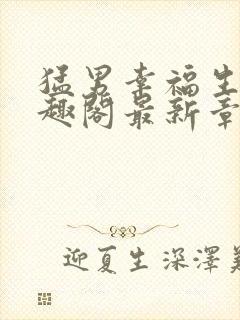 猛男幸福生
趣阁最新章
迎夏生深泽美